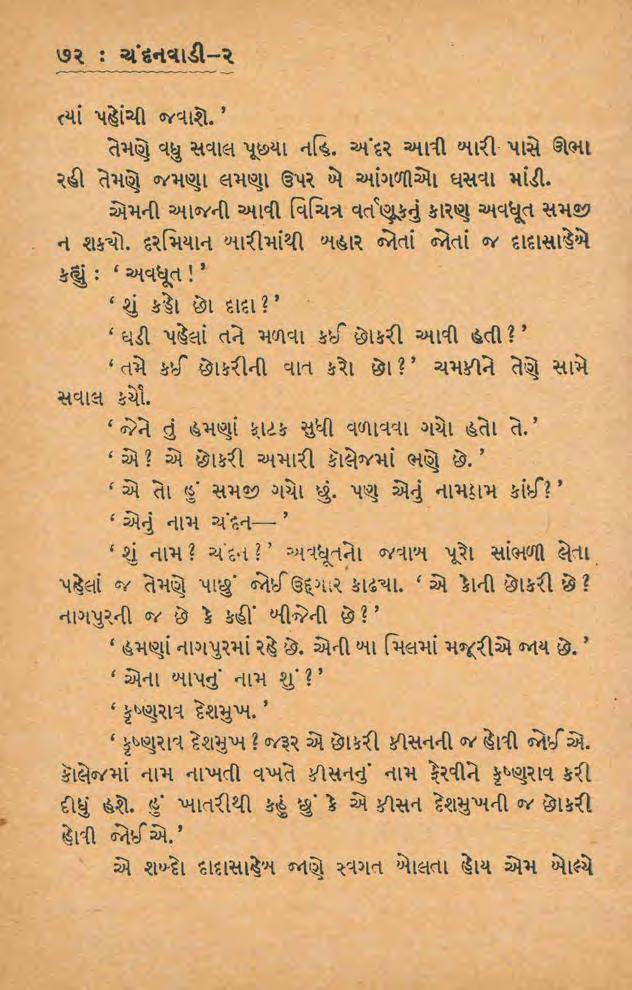 ૭૨ : ચંદનવાડી–૨
ત્યાં પહોંચી જવાશે.’
તેમણે વધુ સવાલ પૂછયા નહિ. અંદર આવી બારી પાસે ઊભા
રહી તેમણે જમણા લમણા ઉપર બે આંગળીઓ ઘસવા માંડી.
એમની આજની આવી વિચિત્ર વર્તણૂકનું કારણ અવધૂત સમજી
ન શકયો. દરમિયાન બારીમાંથી બહાર જોતાં જોતાં જ દાદાસાહેબે
કહ્યું : ‘ અવધૂત ! ’
‘ શું કહો છો દાદા ? ’
‘ ઘડી પહેલાં તને મળવા કઈ છોકરી આવી હતી ? ’
‘ તમે કઈ છોકરીની વાત કરો છો ? ’ ચમકીને તેણે સામે
સવાલ કર્યો.
‘ જેને તું હમણાં ફાટક સુધી વળાવવા ગયો હતો તે. ’
‘ એ ? એ છોકરી અમારી કૉલેજમાં ભણે છે. ’
‘ એ તો હું સમજી ગયો છું. પણ એનું નામઠામ કાંઈ ? ’
‘ એનું નામ ચંદન— ’
‘ શું નામ ? ચંદન ? ’ અવધૂતનો જવાબ પૂરો સાંભળી લેતા
પહેલાં જ તેમણે પાછું જોઈ ઉદ્ગાર કાઢયા. ‘ એ કોની છોકરી છે ?
નાગપુરની જ છે કે કહીં બીજેની છે ? ’
‘ હમણાં નાગપુરમાં રહે છે. એની બા મિલમાં મજૂરીએ જાય છે. ’
‘ એના બાપનું નામ શું ? ’
‘ કૃષ્ણરાવ દેશમુખ. ’
‘ કૃષ્ણરાવ દેશમુખ ? જરૂર એ છોકરી કીસનની જ હોવી જોઈએ.
કૉલેજમાં નામ નાખતી વખતે કીસનનું નામ ફેરવીને કૃષ્ણરાવ કરી
દીધું હશે. હું ખાતરીથી કહું છું કે એ કીસન દેશમુખની જ છોકરી
હોવી જોઈએ. ’
એ શબ્દો દાદાસાહેબ જાણે સ્વગત બોલતા હોય એમ બોલ્યે